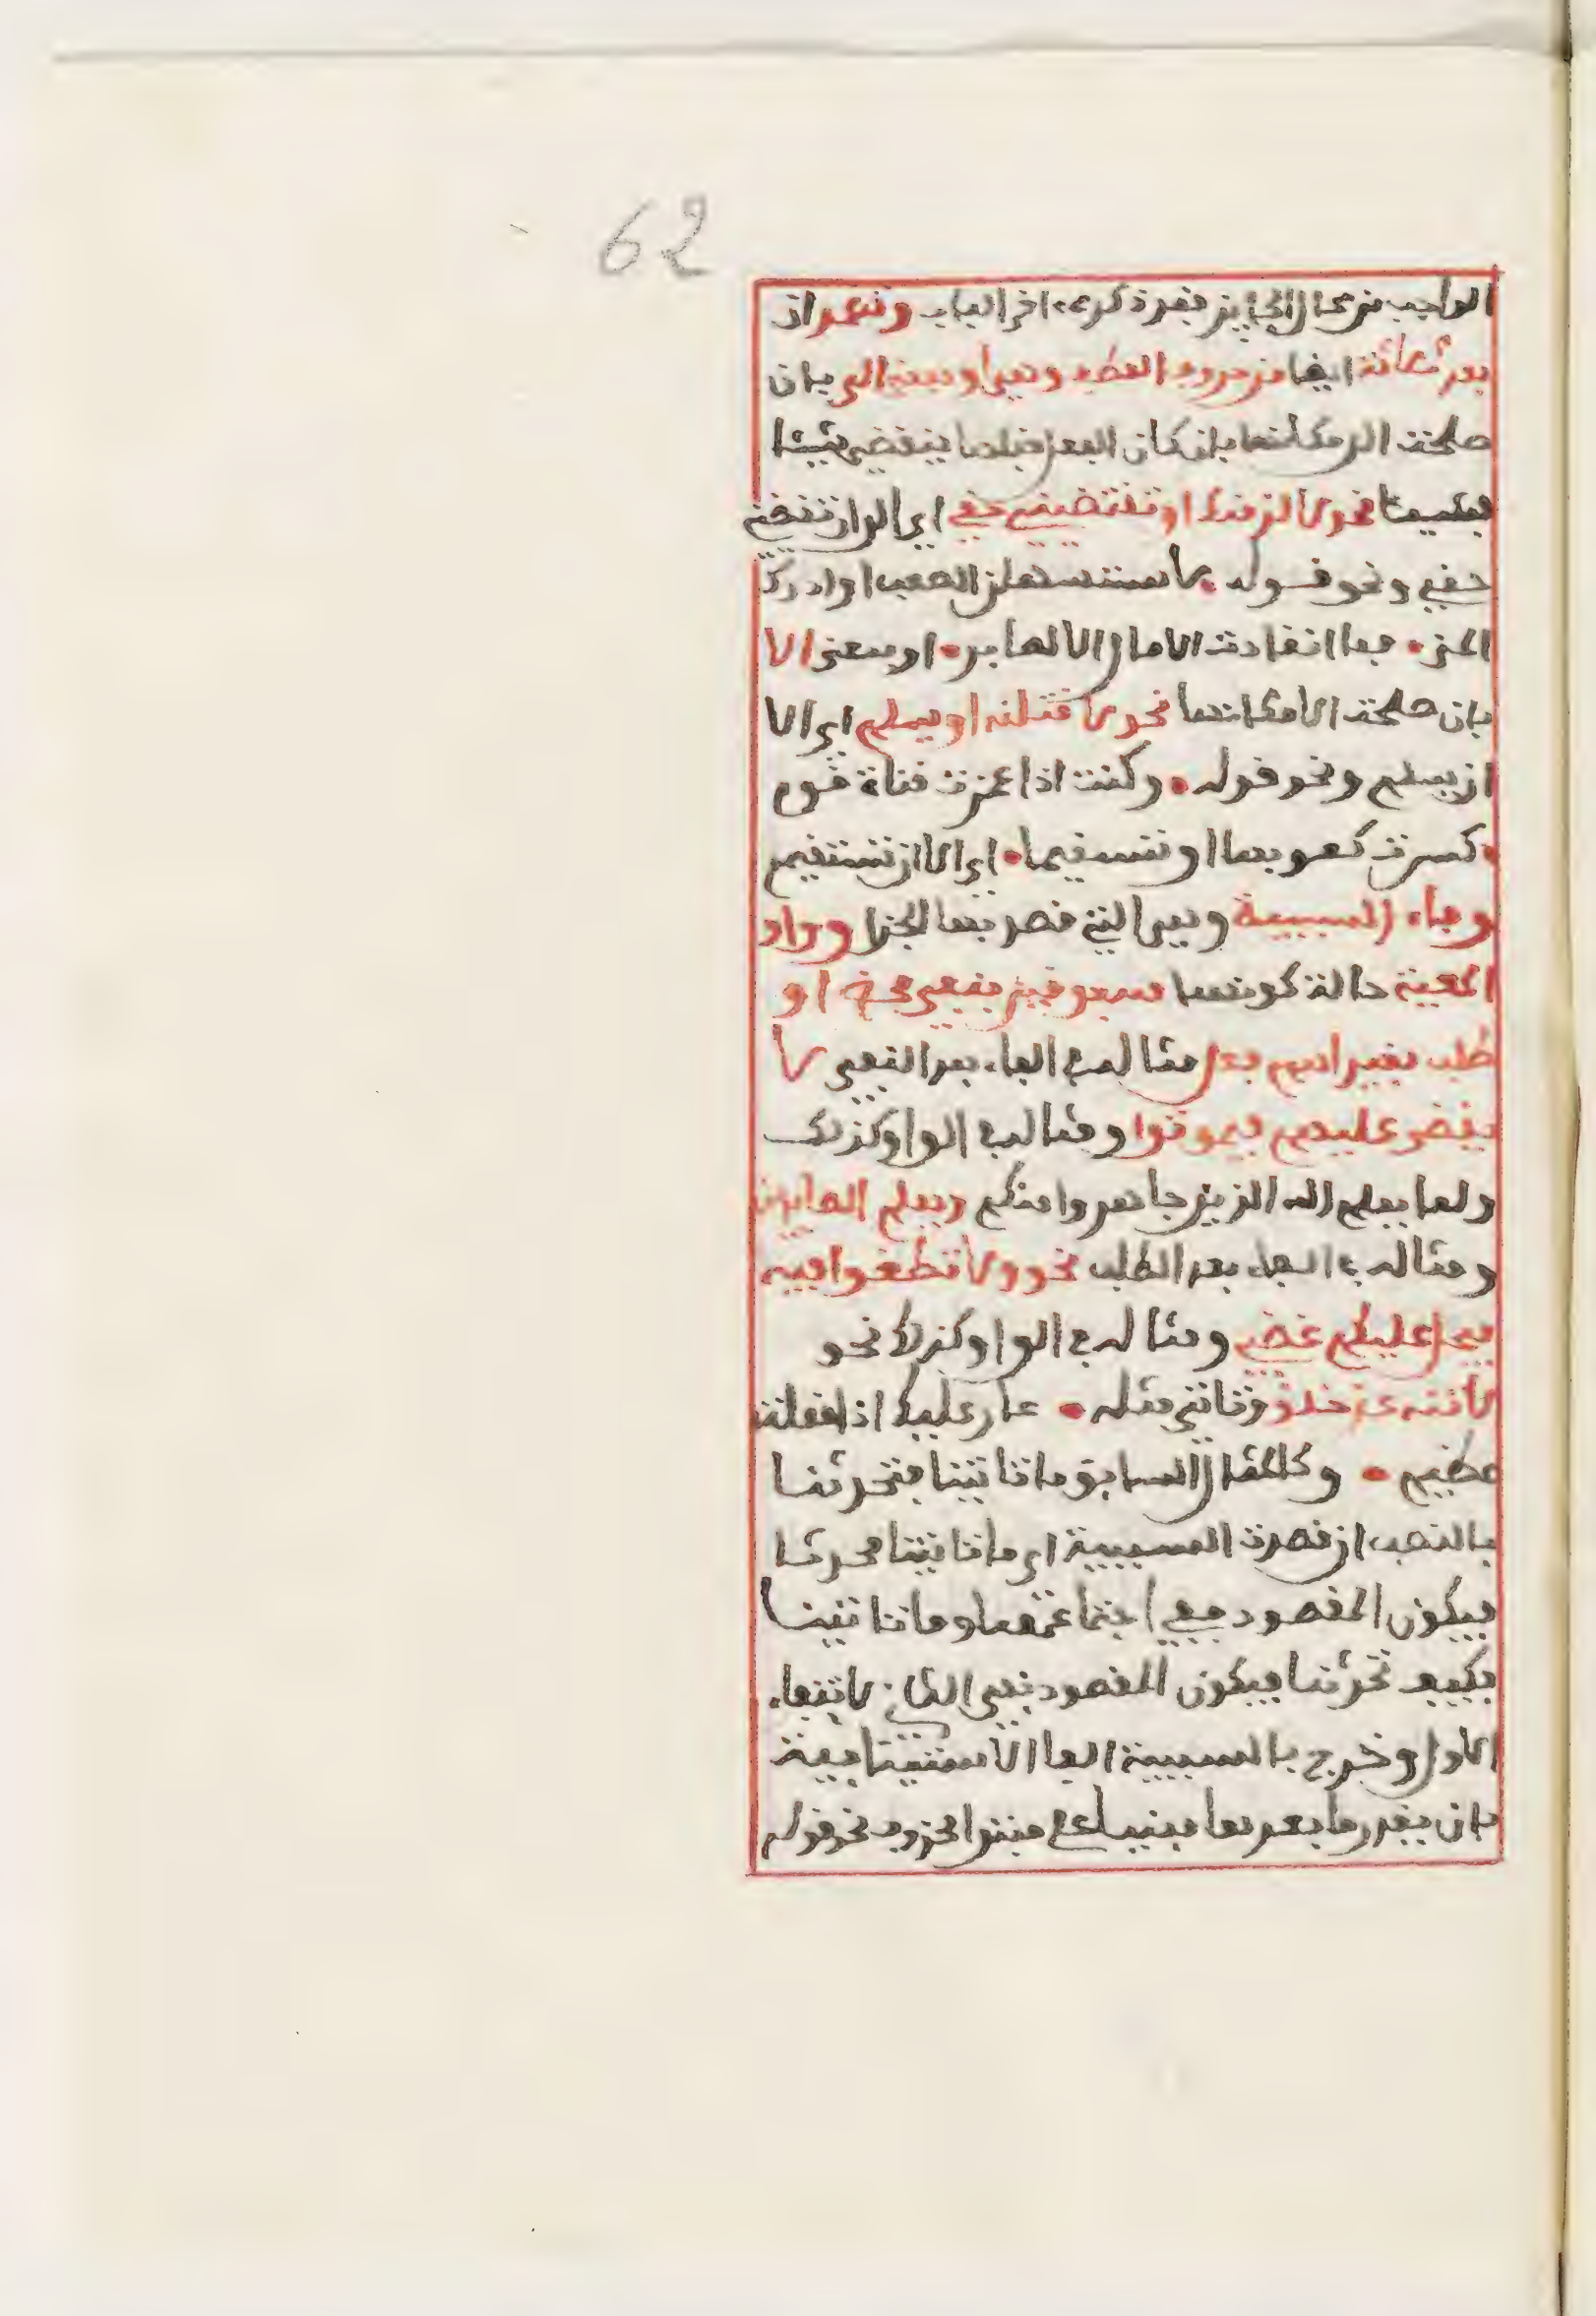 62
الواجب من محال الجايز فقد ذكره اخر الباب وتضمر ان
بعد ثلاثة ايضا من حروف العطف وهي او بمعنى الى بان
صلحت الى مكانها بان كان الفعل قبلها ينقضي شيئا
فشيئا نحو لالزمنك او تقتضيني حقي اي الى ان تقضيني
حقي ونحو قوله لاستسهلن الصعب او ادرك
المنى • فما انقادت الامال الا لصابر • او بمعنى الا
بان صلحت الا مكانها نحو لاقتلنه او يسلم اي الا
ان يسلم ونحو قوله • وكنت اذا غمزت قناة قوم
• كسرت كعوبها او تستقيما • اي الا ان تستقيم
وفاء السببية وهي التي قصد بها الجزا وواو
المعية حالة كونهما مسبوقين بنفي محض او
طلب بغير اسم فعل مثاله في الفاء بعد النفي لا
يقضى عليهم فيموتوا ومثاله في الواو كذلك
ولما يعلم الله الذين جاهدوا منكم ويعلم الصابرين
ومثاله في الفاء بعد الطلب نحو ولا تطغوا فيه
فيحل عليكم غضبي ومثاله في الواو كذلك نحو
لا تنه عن خلق وتاتي مثله • عار عليك اذا فعلت
عظيم • وكالمثال السابق ما تاتينا فتحدثنا
بالنصب ان قصدت السببية اي ما تاتينا محدثا
فيكون المقصود نفي اجتماعهما او ما تاتينا
فكيف تحدثنا فيكون المقصود نفي الثاني لانتفاء
الاول وخرج بالسببية الفا الاستينافية
بان يقدر ما بعدها مبنيا على مبتدا محذوف نحو قوله